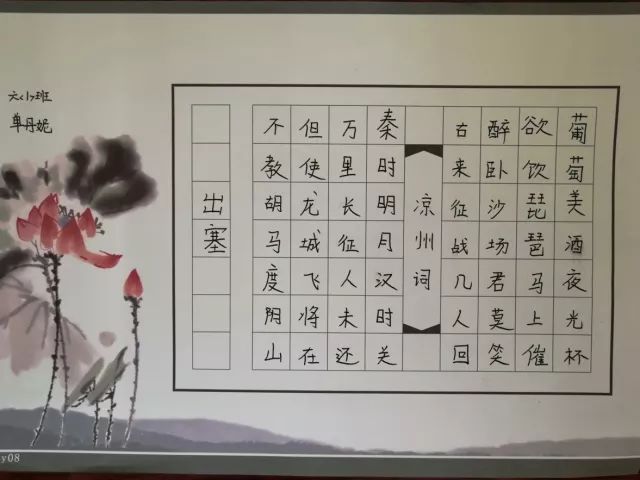 葡萄美酒夜光杯
欲饮琵琶马上催
醉卧沙场君莫笑
古来征战几人回
凉州词
秦时明月汉时关
万里长征人未还
但使龙城飞将在
不教胡马度阴山
出塞
六(1)班
单丹妮
y08